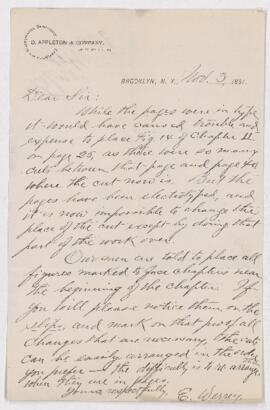 D. APPLETON & COMPANY,
BROOKLYN, N. Y., Nov. 3, 1891.
Dear Sir:
While the pages were in type
it would have caused trouble and
expense to place Fig 14 of Chapter II
on page 25, as there were so many
cuts between that page and page 40
where the cut now is. But the
pages have been electrotyped, and
it is now impossible to change the
place of the cut except by doing that
part of the work over.
Our men are told to place all
figures marked to face chapters near
the beginning of the chapter. If
you will please notice them on the
slips, and mark on that proof all
changes that are necessary, the cuts
can be easily arranged in the order
you prefer — the difficulty is to re-arrange
when they are in pages.
Yours respectfully
E.